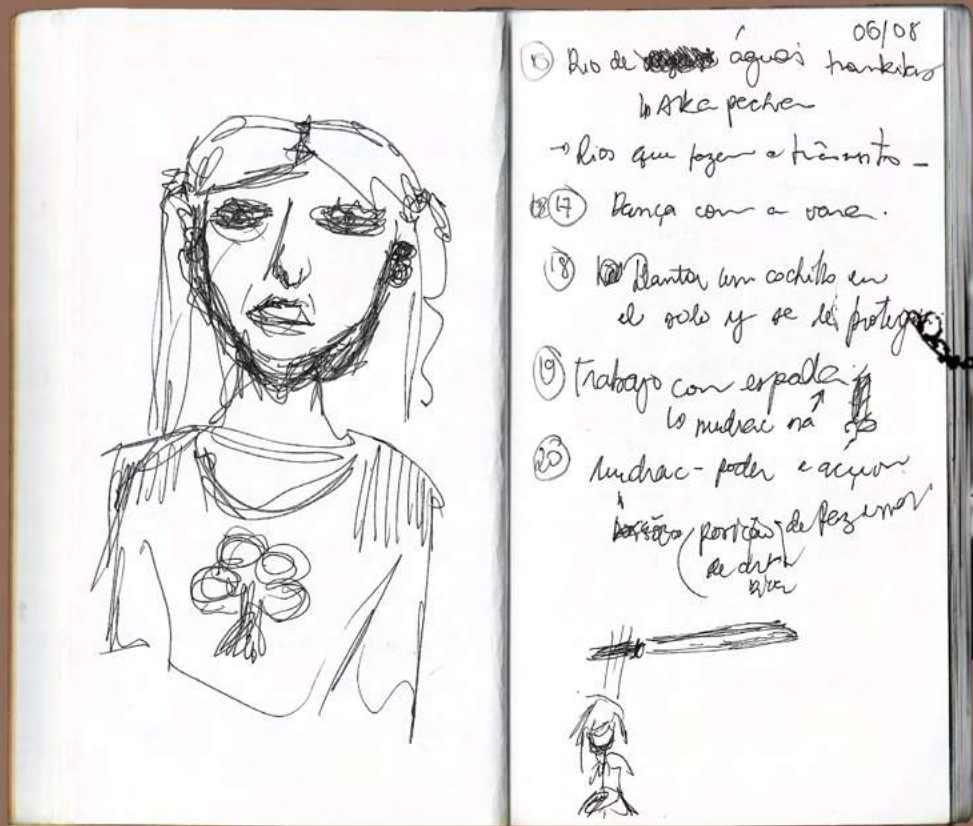 06/08
15 Rio de águas trankilas
↳ Aka pechen
→ Rios que fazem a trânsito -
17 Dança com a vara.
18 Plantar um cochillo en
el solo y se les protege
19 trabajo con espada
↳ mudrac na
20 mudrac - poder e
posição de
de